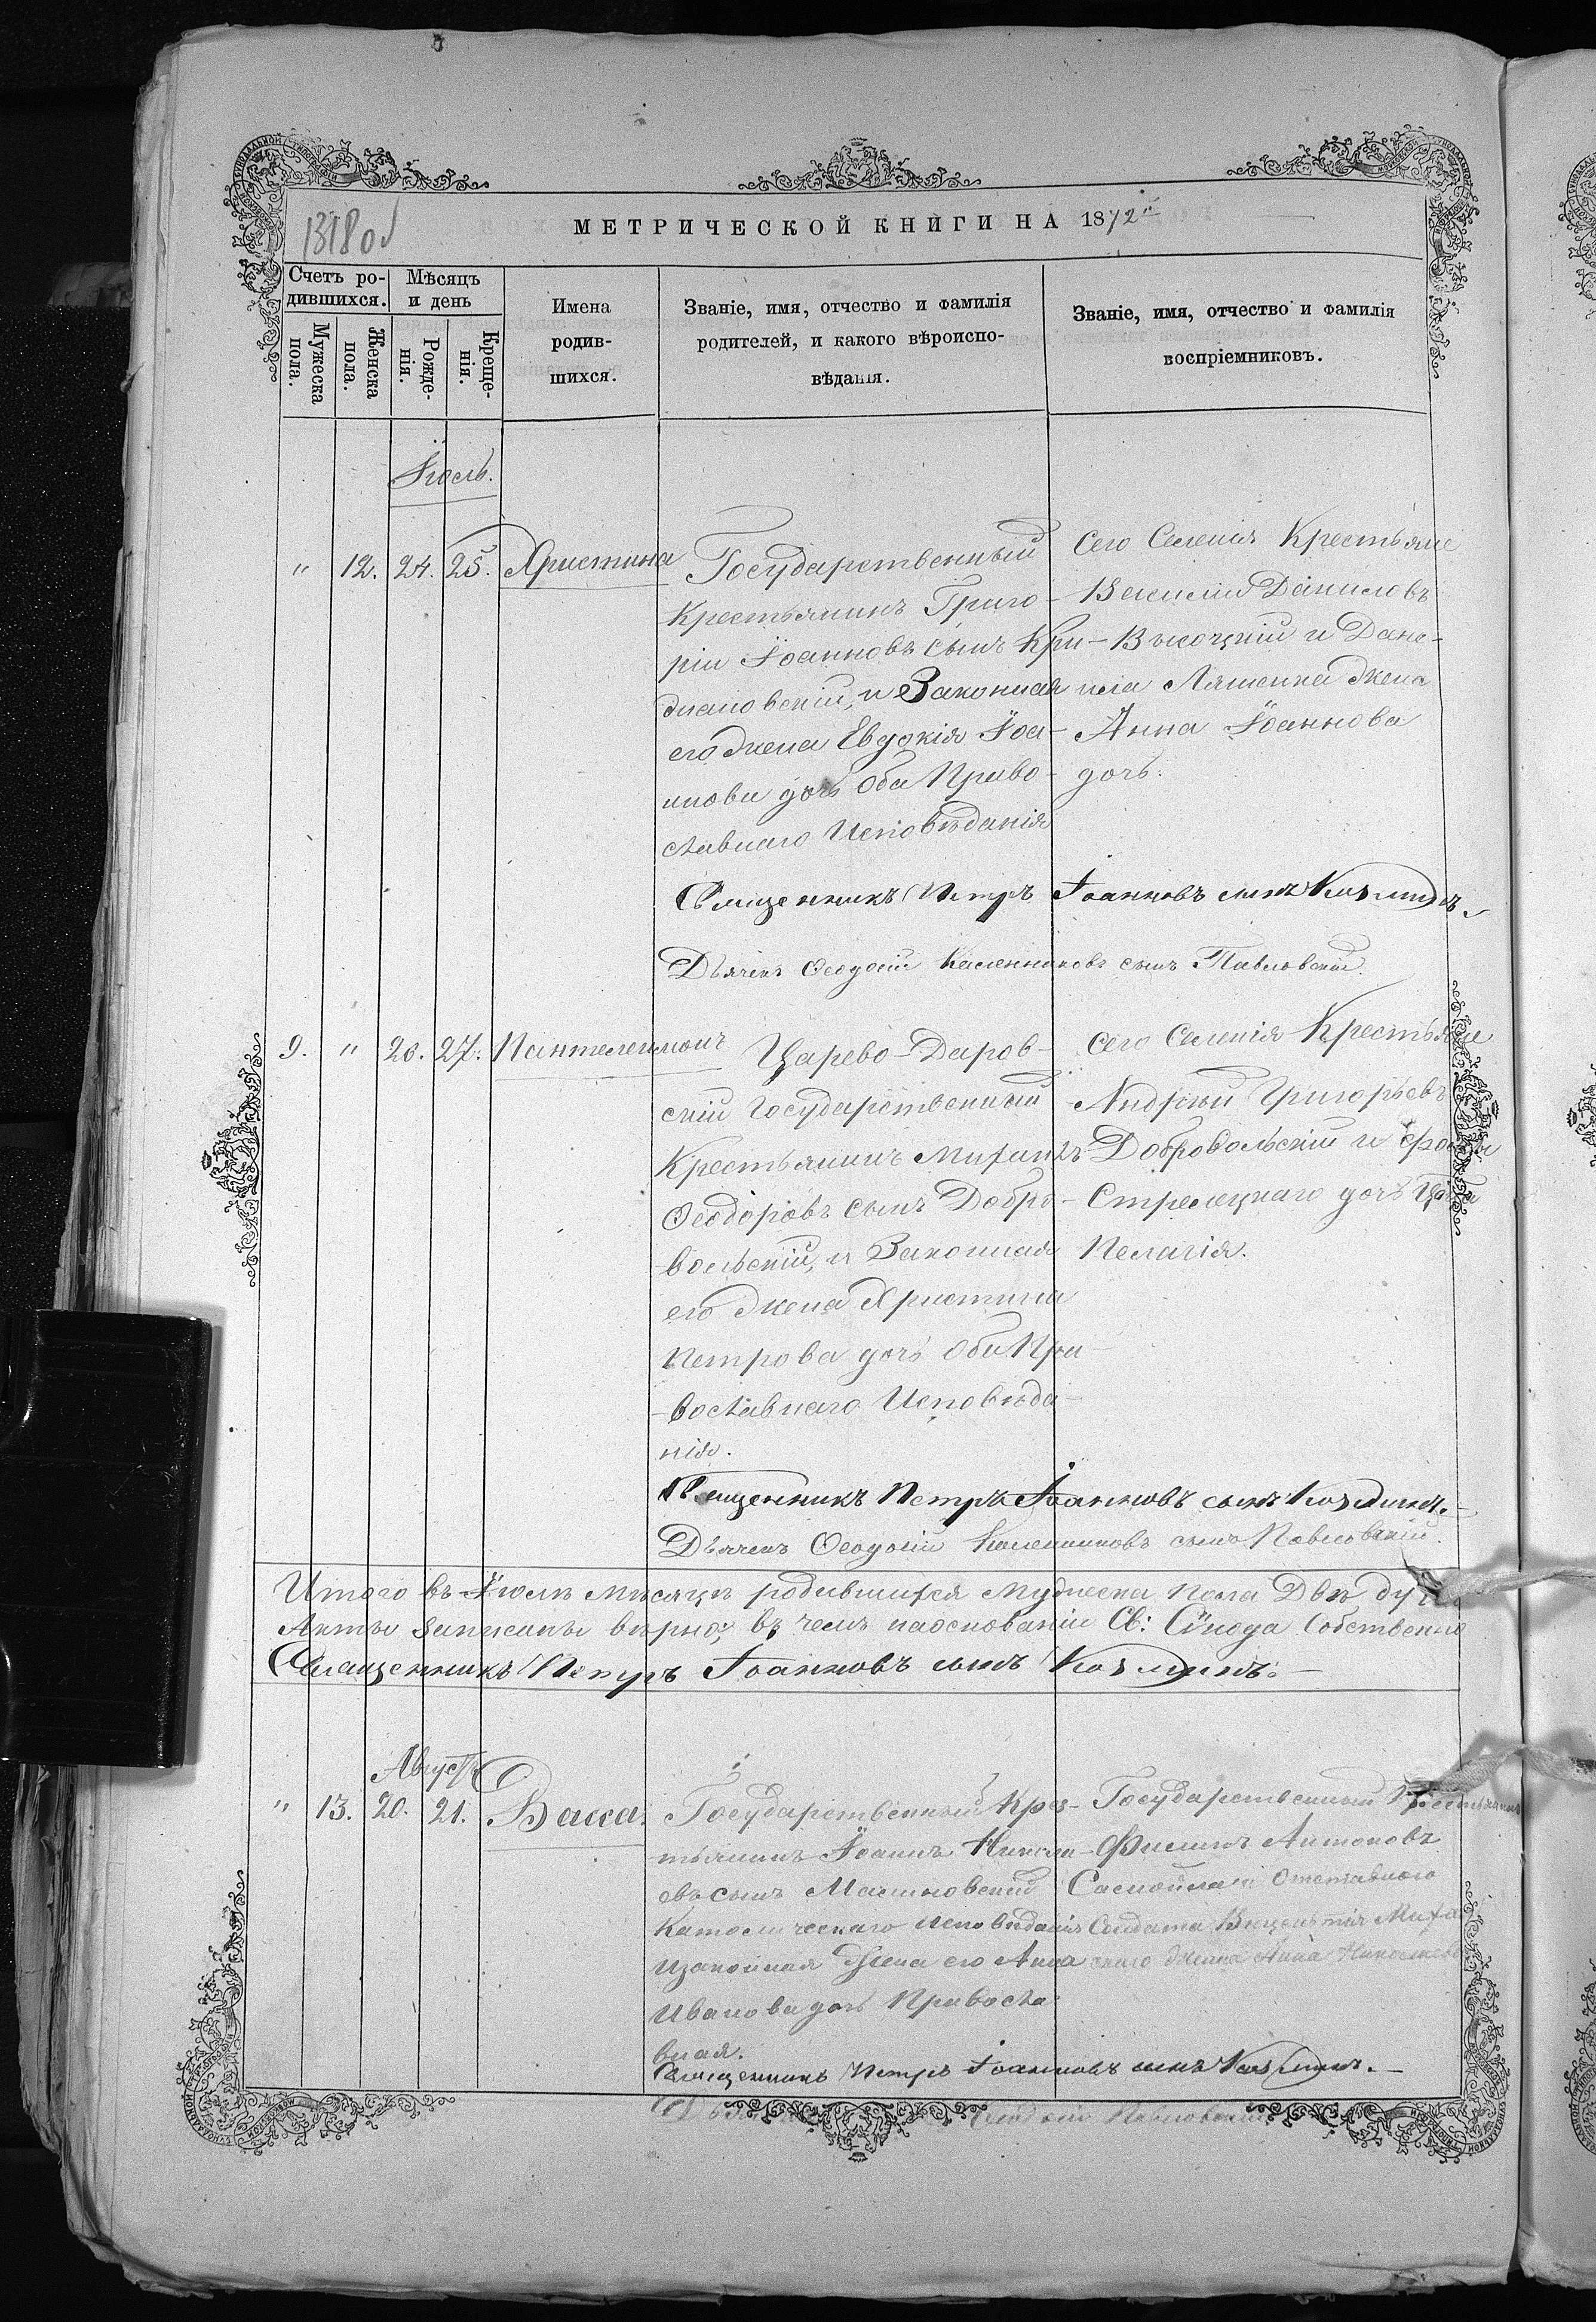 1318 об
МЕТРИЧЕСКОЙ КНИГИ НА 1872й
Счетъ родившихся.
Мѣсяцъ и день
Мужеска пола.
Женска пола.
Рожденія.
Крещенія.
Имена родившихся.
Званіе, имя, отчество и фамилія
родителей, и какого вѣроиспо-
вѣданія.
Званіе, имя, отчество и фамилія
воспріемниковъ.
Іюль.
" 12. 24. 25. Христина
Государственный
Крестьянинъ Григо-
рій Іоанновъ сынъ Кри-
, и Законная
его жена Евдокія Іоа-
ннова дочь Оба Право-
славнаго Исповѣданія
Сего Селенія Крестьяне
Василій Даниловъ
Высоцкій и Дани-
ила Ляшенка жена
Анна Іоаннова
дочь.
Священникъ Петръ Іоанновъ сынъ Козминъ.
Дьячекъ Ѳеодосій сынъ Павловскій.
9. " 26. 27. Пантелеимонъ
Царево-Даров-
скій Государственный
Крестьянинъ Михаилъ
Ѳеодоровъ сынъ Добро-
вольскій, и Законная
его жена Христина
Петрова дочь Оба Пра-
вославнаго Исповѣда-
нія.
Сего Селенія Крестьяне
Андрей Григорьевъ
Добровольскій и
Стрелецкаго дочь
Пелагія.
Священникъ Петръ Іоанновъ сынъ Козминъ.
Дьячекъ Ѳеодосій сынъ Павловскій.
Итого въ Іюлѣ мѣсяцѣ родившихся Мужеска пола Двѣ
Акты записаны вѣрно, въ чемъ на основаніи Св: Сѵнода Собственно
Священникъ Петръ Іоанновъ сынъ Козминъ.
Августъ
" 13. 20. 21. Васса.
Государственный Крес-
тьянинъ Іоаннъ Никола-
евъ сынъ
Католическаго исповѣданія
и законная жена его Анна
Иванова дочь Правосла-
вная.
Государственный Крестьянинъ
Филипъ Антоновъ
Отставнаго
Солдата Викентія
жена Анна
Священникъ Петръ Іоанновъ сынъ Козминъ.
Ѳеодосій Павловскій